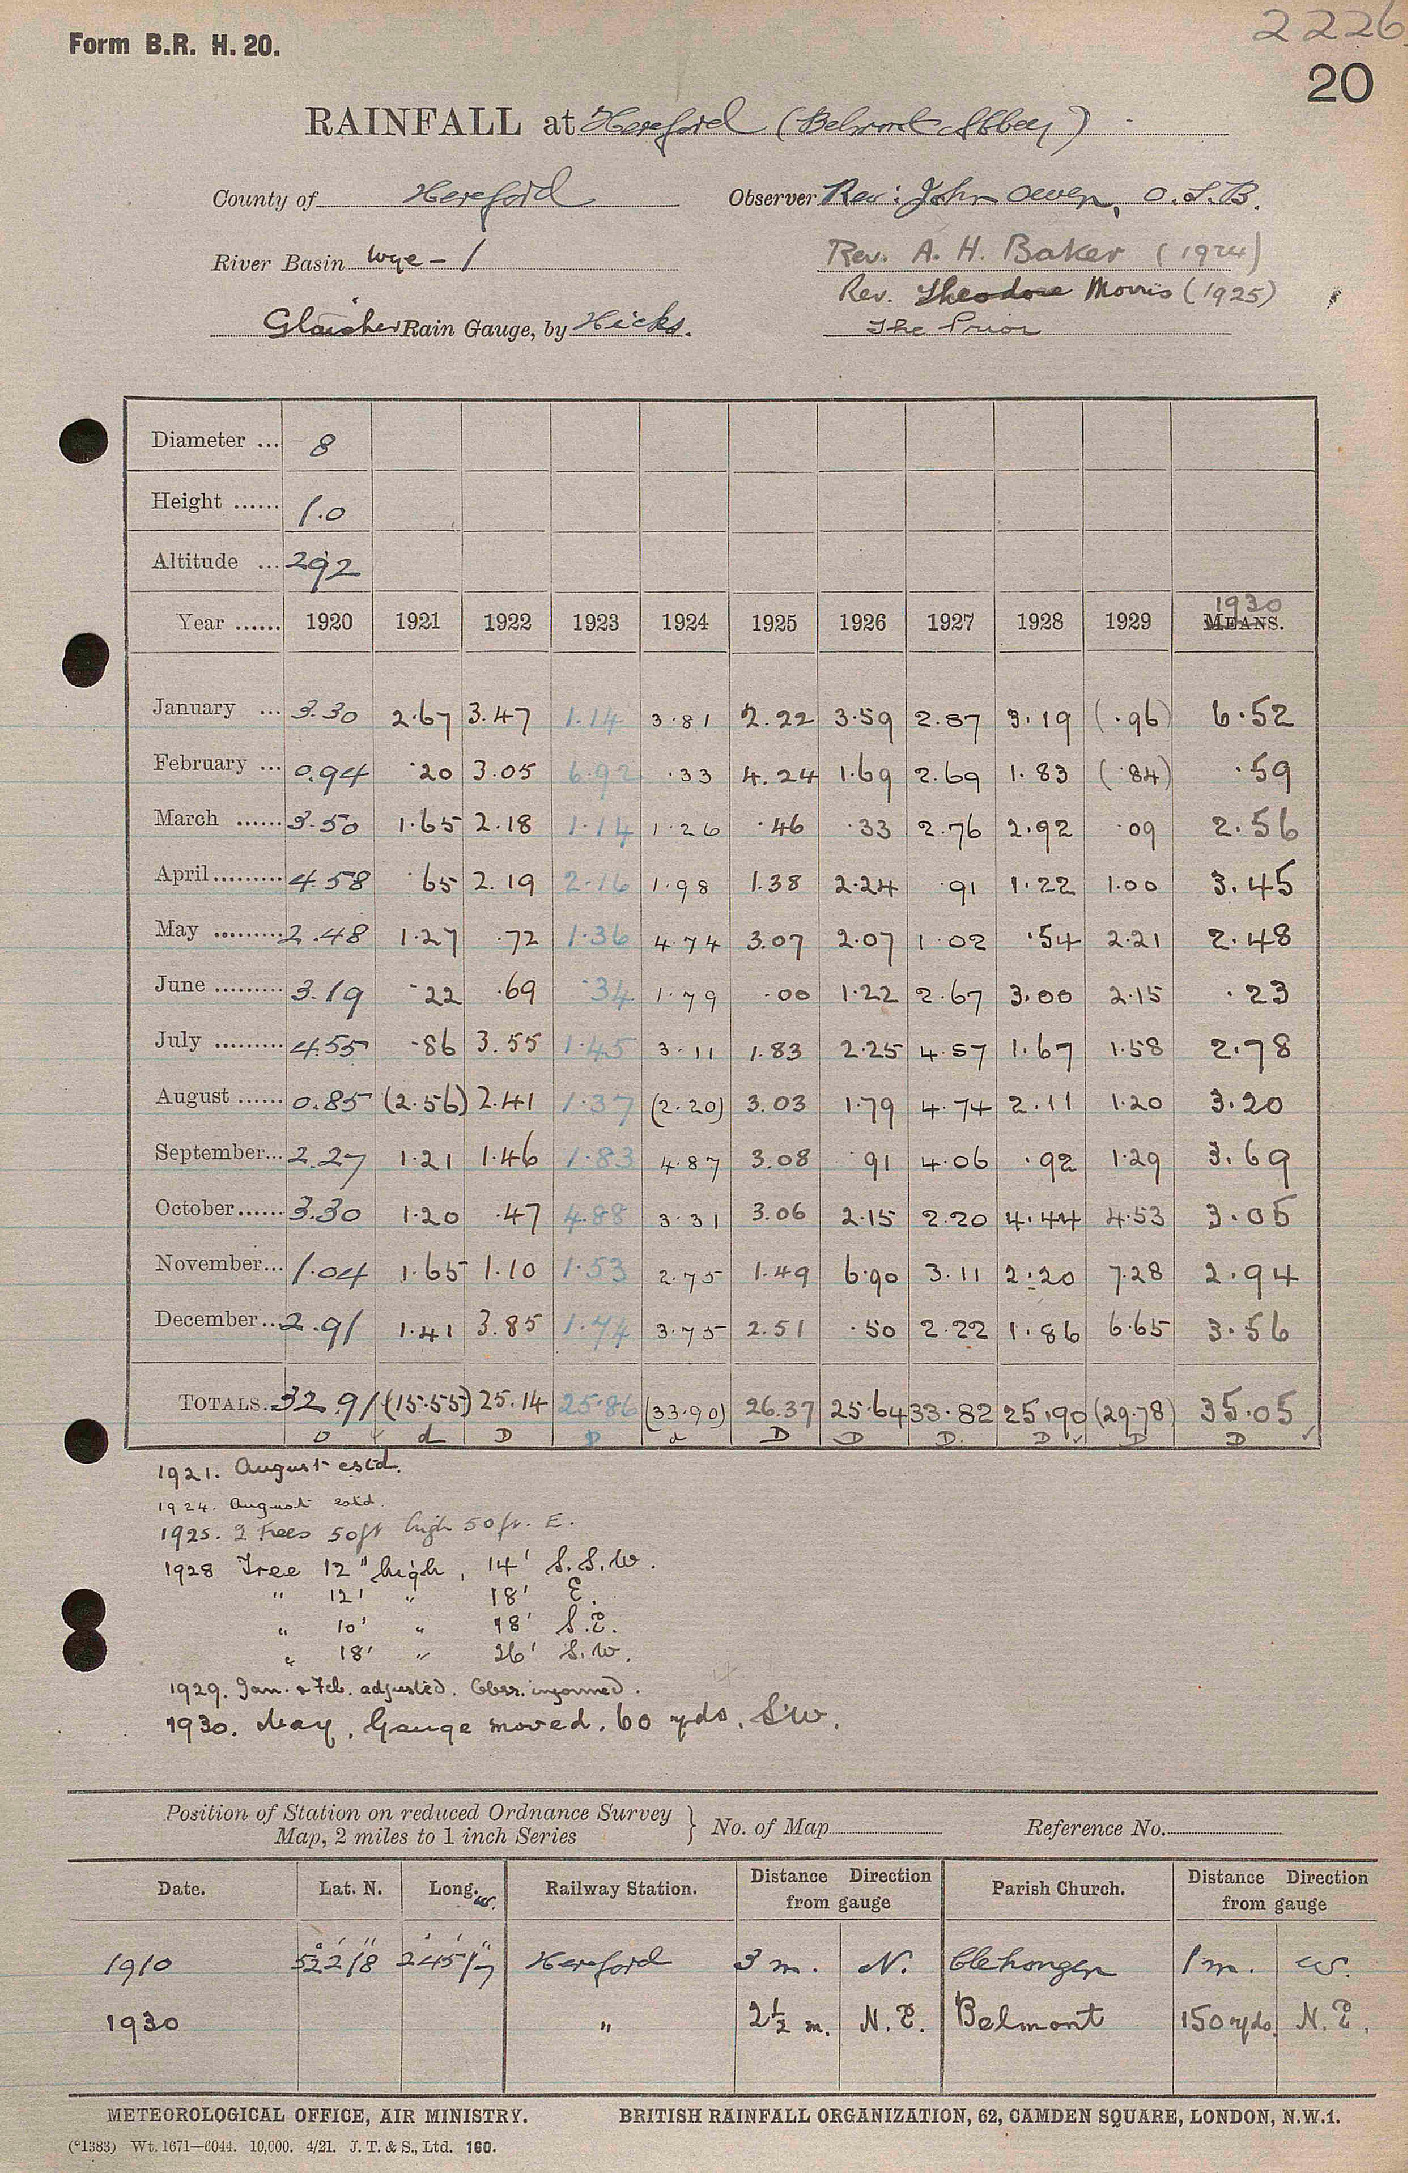 2226
Form B.R. H. 20.
20
RAINFALL at Hereford (Belmont Abbey)
County of Hereford Observer Rev: John Owen, O.S.B.
River Basin Wye - 1 Rev. A. H. Baker (1924)
Rev. Theodore Morris (1925)
Glaisher Rain Gauge, by Hicks. The Prior
Diameter ... 8
Height ...... 1.0
Altitude ... 292
1930
Year ...... 1920 1921 1922 1923 1924 1925 1926 1927 1928 1929 MEANS.
January ... 3.30 2.67 3.47 1.14 3.81 2.22 3.59 2.87 3.19 (.96) 6.52
February ... 0.94 .20 3.05 6.92 .33 4.24 1.69 2.69 1.83 (.84) .59
March ...... 3.50 1.65 2.18 1.14 1.26 .46 .33 2.76 2.92 .09 2.56
April ......... 4.58 .65 2.19 2.16 1.98 1.38 2.24 .91 1.22 1.00 3.45
May ......... 2.48 1.27 .72 1.36 4.74 3.07 2.07 1.02 .54 2.21 2.48
June ......... 3.19 .22 .69 .34 1.79 .00 1.22 2.67 3.00 2.15 .23
July ......... 4.55 .86 3.55 1.45 3.11 1.83 2.25 4.57 1.67 1.58 2.78
August ...... 0.85 (2.56) 2.41 1.37 (2.20) 3.03 1.79 4.74 2.11 1.20 3.20
September... 2.27 1.21 1.46 1.83 4.87 3.08 .91 4.06 .92 1.29 3.69
October...... 3.30 1.20 .47 4.88 3.31 3.06 2.15 2.20 4.44 4.53 3.05
November... 1.04 1.65 1.10 1.53 2.75 1.49 6.90 3.11 2.20 7.28 2.94
December... 2.91 1.41 3.85 1.74 3.75 2.51 .50 2.22 1.86 6.65 3.56
TOTALS. 32.91 (15.55) 25.14 25.86 (33.90) 26.37 25.64 33.82 25.90 (29.78) 35.05
D d D D d D D D. D D D
1921. August estd.
1924. August estd.
1925. 2 trees 50ft high 50ft. E.
1928 Tree 12" high, 14' S.S.W.
" 12' " 18' E.
" 10' " 18' S.E.
" 18' " 26' S.W.
1929. Jan. & Feb. adjusted. Obsr. informed.
1930. May, Gauge moved, 60 yds. SW.
Position of Station on reduced Ordnance Survey
Map, 2 miles to 1 inch Series } No. of Map Reference No.
Date. Lat. N. Long. W. Railway Station. Distance Direction from gauge Parish Church. Distance Direction from gauge
1910 52° 2' 18" 2° 45' 17" Hereford 3 m. N. Clehonger 1 m. W.
1930 " 2½ m. N.E. Belmont 150 yds. N.E.
METEOROLOGICAL OFFICE, AIR MINISTRY. BRITISH RAINFALL ORGANIZATION, 62, CAMDEN SQUARE, LONDON, N.W.1.
(*1383) Wt. 1671—6044. 10,000. 4/21. J. T. & S., Ltd. 160.